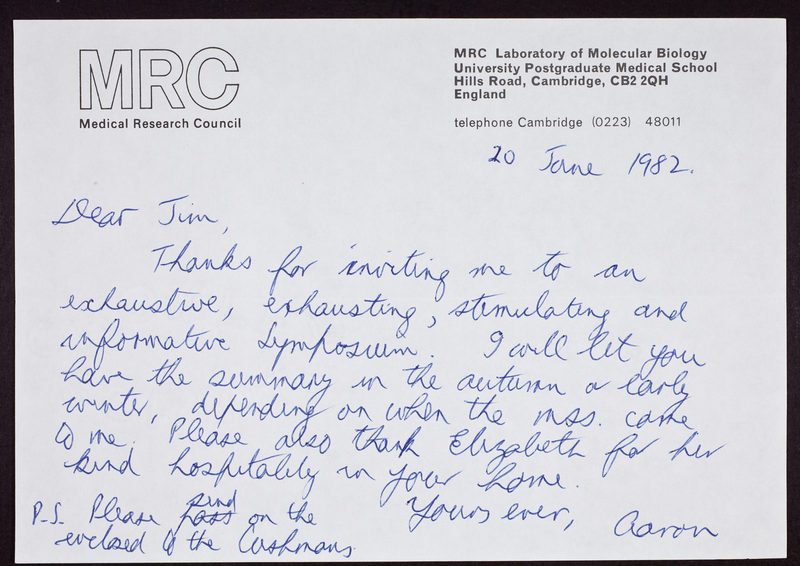 MRC
Medical Research Council
MRC Laboratory of Molecular Biology
University Postgraduate Medical School
Hills Road, Cambridge, CB2 2QH
England
telephone Cambridge (0223) 48011
20 June 1982.
Dear Jim,
Thanks for inviting me to an
exhaustive, exhausting, stimulating and
informative Symposium. I will let you
have the summary in the autumn or early
winter, depending on when the mss. come
to me. Please also thank Elizabeth for her
kind hospitality in your home.
Yours ever, Aaron
P.S. Please send on the
enclosed to the Cushmans.